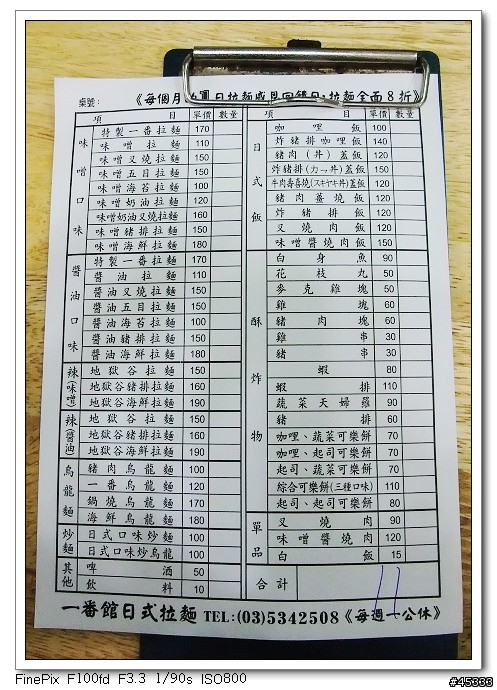 桌號:
《每個月
日拉麵感恩回饋日,拉麵全面8折》
項 目 單價 數量
味噌口味
特製一番拉麵 170
味噌拉麵 110
味噌叉燒拉麵 150
味噌五目拉麵 150
味噌海苔拉麵 100
味噌奶油拉麵 120
味噌奶油叉燒拉麵 160
味噌豬排拉麵 150
味噌海鮮拉麵 180
醬油口味
特製一番拉麵 170
醬油拉麵 110
醬油叉燒拉麵 150
醬油五目拉麵 150
醬油海苔拉麵 100
醬油豬排拉麵 150
醬油海鮮拉麵 180
辣(味噌)
地獄谷拉麵 150
地獄谷豬排拉麵 160
地獄谷海鮮拉麵 190
辣(醬油)
地獄谷拉麵 150
地獄谷豬排拉麵 160
地獄谷海鮮拉麵 190
烏龍麵
豬肉烏龍麵 100
一番烏龍麵 120
鍋燒烏龍麵 170
海鮮烏龍麵 180
炒麵
日式口味炒麵 100
日式口味炒烏龍 100
其他
啤酒 50
飲料 10
項 目 單價 數量
日式飯
咖哩飯 100
炸豬排咖哩飯 140
豬肉(丼)蓋飯 120
炸豬排(カツ丼)蓋飯 150
牛肉壽喜燒(スキヤキ丼)蓋飯 120
豬肉薑燒飯 120
炸豬排飯 120
叉燒肉飯 120
味噌醬燒肉飯 150
酥炸物
白身魚 90
花枝丸 50
麥克雞塊 50
雞塊 60
豬肉塊 60
雞串 30
豬串 30
蝦 80
蝦排 110
蔬菜天婦羅 90
豬排 60
咖哩、蔬菜可樂餅 70
咖哩、起司可樂餅 70
起司、蔬菜可樂餅 70
綜合可樂餅(三種口味) 110
起司、起司可樂餅 80
單品
叉燒肉 90
味噌醬燒肉 120
白飯 15
合計
一番館日式拉麵 TEL:(03)5342508《每週一公休》
FinePix F100fd F3.3 1/90s ISO800
#45333